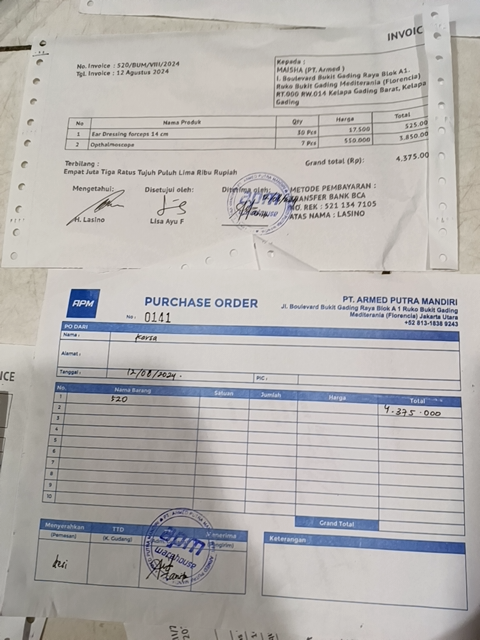 INVOIC
No. Invoice : 520/BUM/VIII/2024
Tgl. Invoice : 12 Agustus 2024
Kepada :
MAISHA (PT. Armed )
l. Boulevard Bukit Gading Raya Blok A1.
Ruko Bukit Gading Mediterania (Florencia)
RT.000 RW.014 Kelapa Gading Barat, Kelapa
Gading
No Nama Produk Qty Harga Total
1 Ear Dressing forceps 14 cm 30 Pcs 17.500 525.00
2 Opthalmoscope 7 Pcs 550.000 3.850.00
Grand total (Rp): 4.375.00
Terbilang :
Empat Juta Tiga Ratus Tujuh Puluh Lima Ribu Rupiah
Mengetahui: Disetujui oleh: Diterima oleh:
METODE PEMBAYARAN :
TRANSFER BANK BCA
NO. REK : 521 134 7105
ATAS NAMA : LASINO
H. Lasino Lisa Ayu F
APM
PURCHASE ORDER
No : 0141
PT. ARMED PUTRA MANDIRI
Jl. Boulevard Bukit Gading Raya Blok A 1 Ruko Bukit Gading
Mediterania (Florencia) Jakarta Utara
+52 813-1838 9243
PO DARI
Nama : Karsa
Alamat :
Tanggal : 12/08/2024. PIC :
No. Nama Barang Satuan Jumlah Harga Total
1 520 4.375.000
2
3
4
5
6
7
8
9
10
Grand Total
Menyerahkan TTD Penerima
(Pemesan) (K. Gudang)
Keterangan
apm
warehouse
NCE